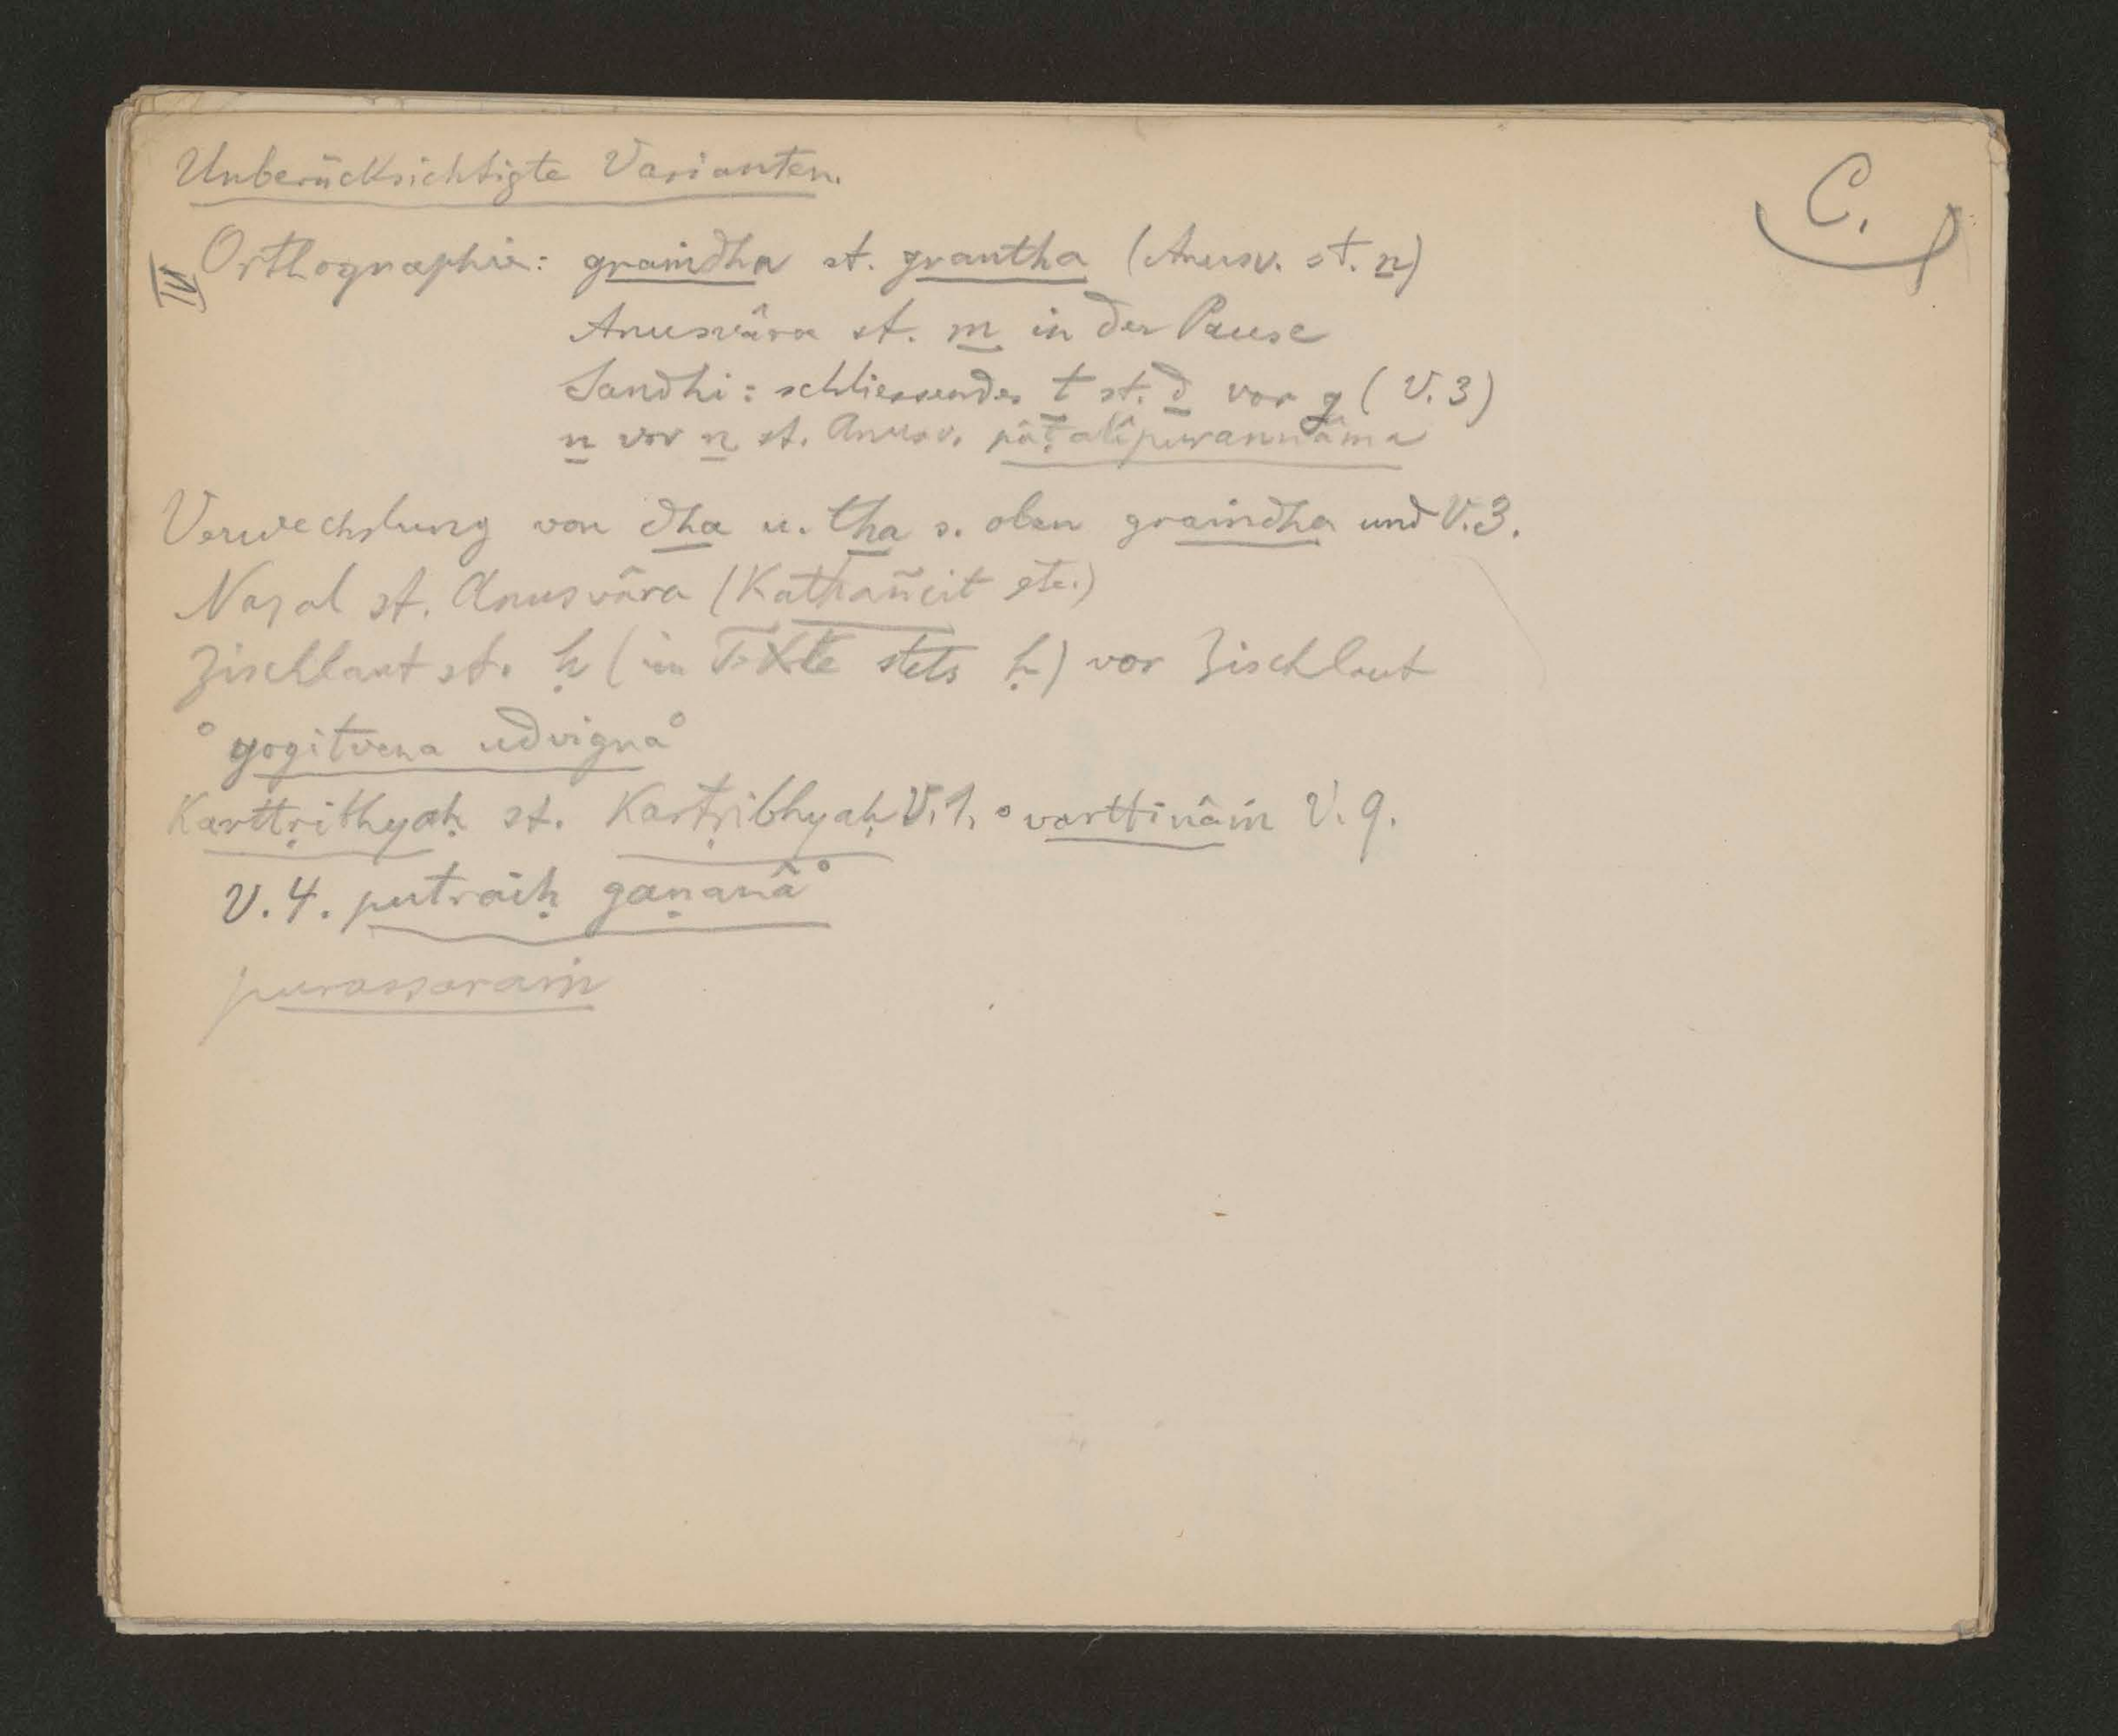 Unberücksichtigte Varianten.
C.
IV Orthographie: graṁdha st. grantha (Anusv. st. n)
Anusvâra st. m in der Pause
Sandhi: schliessendes t st. d vor g (V. 3)
n vor n st. Anusv. pâṭalîpurannâma
Verwechslung von dha u. tha s. oben graṁdha und V. 3.
Nasal st. Anusvâra (Kathañcit etc.)
Zischlaut st. ḥ (im Texte stets ḥ) vor Zischlaut
°yogitvena udvigna°
Karttṛibhyaḥ st. Kartṛibhyaḥ V. 1. °varttinâṁ V. 9.
V. 4. putraiḥ gaṇanâ°
purassaraṁ